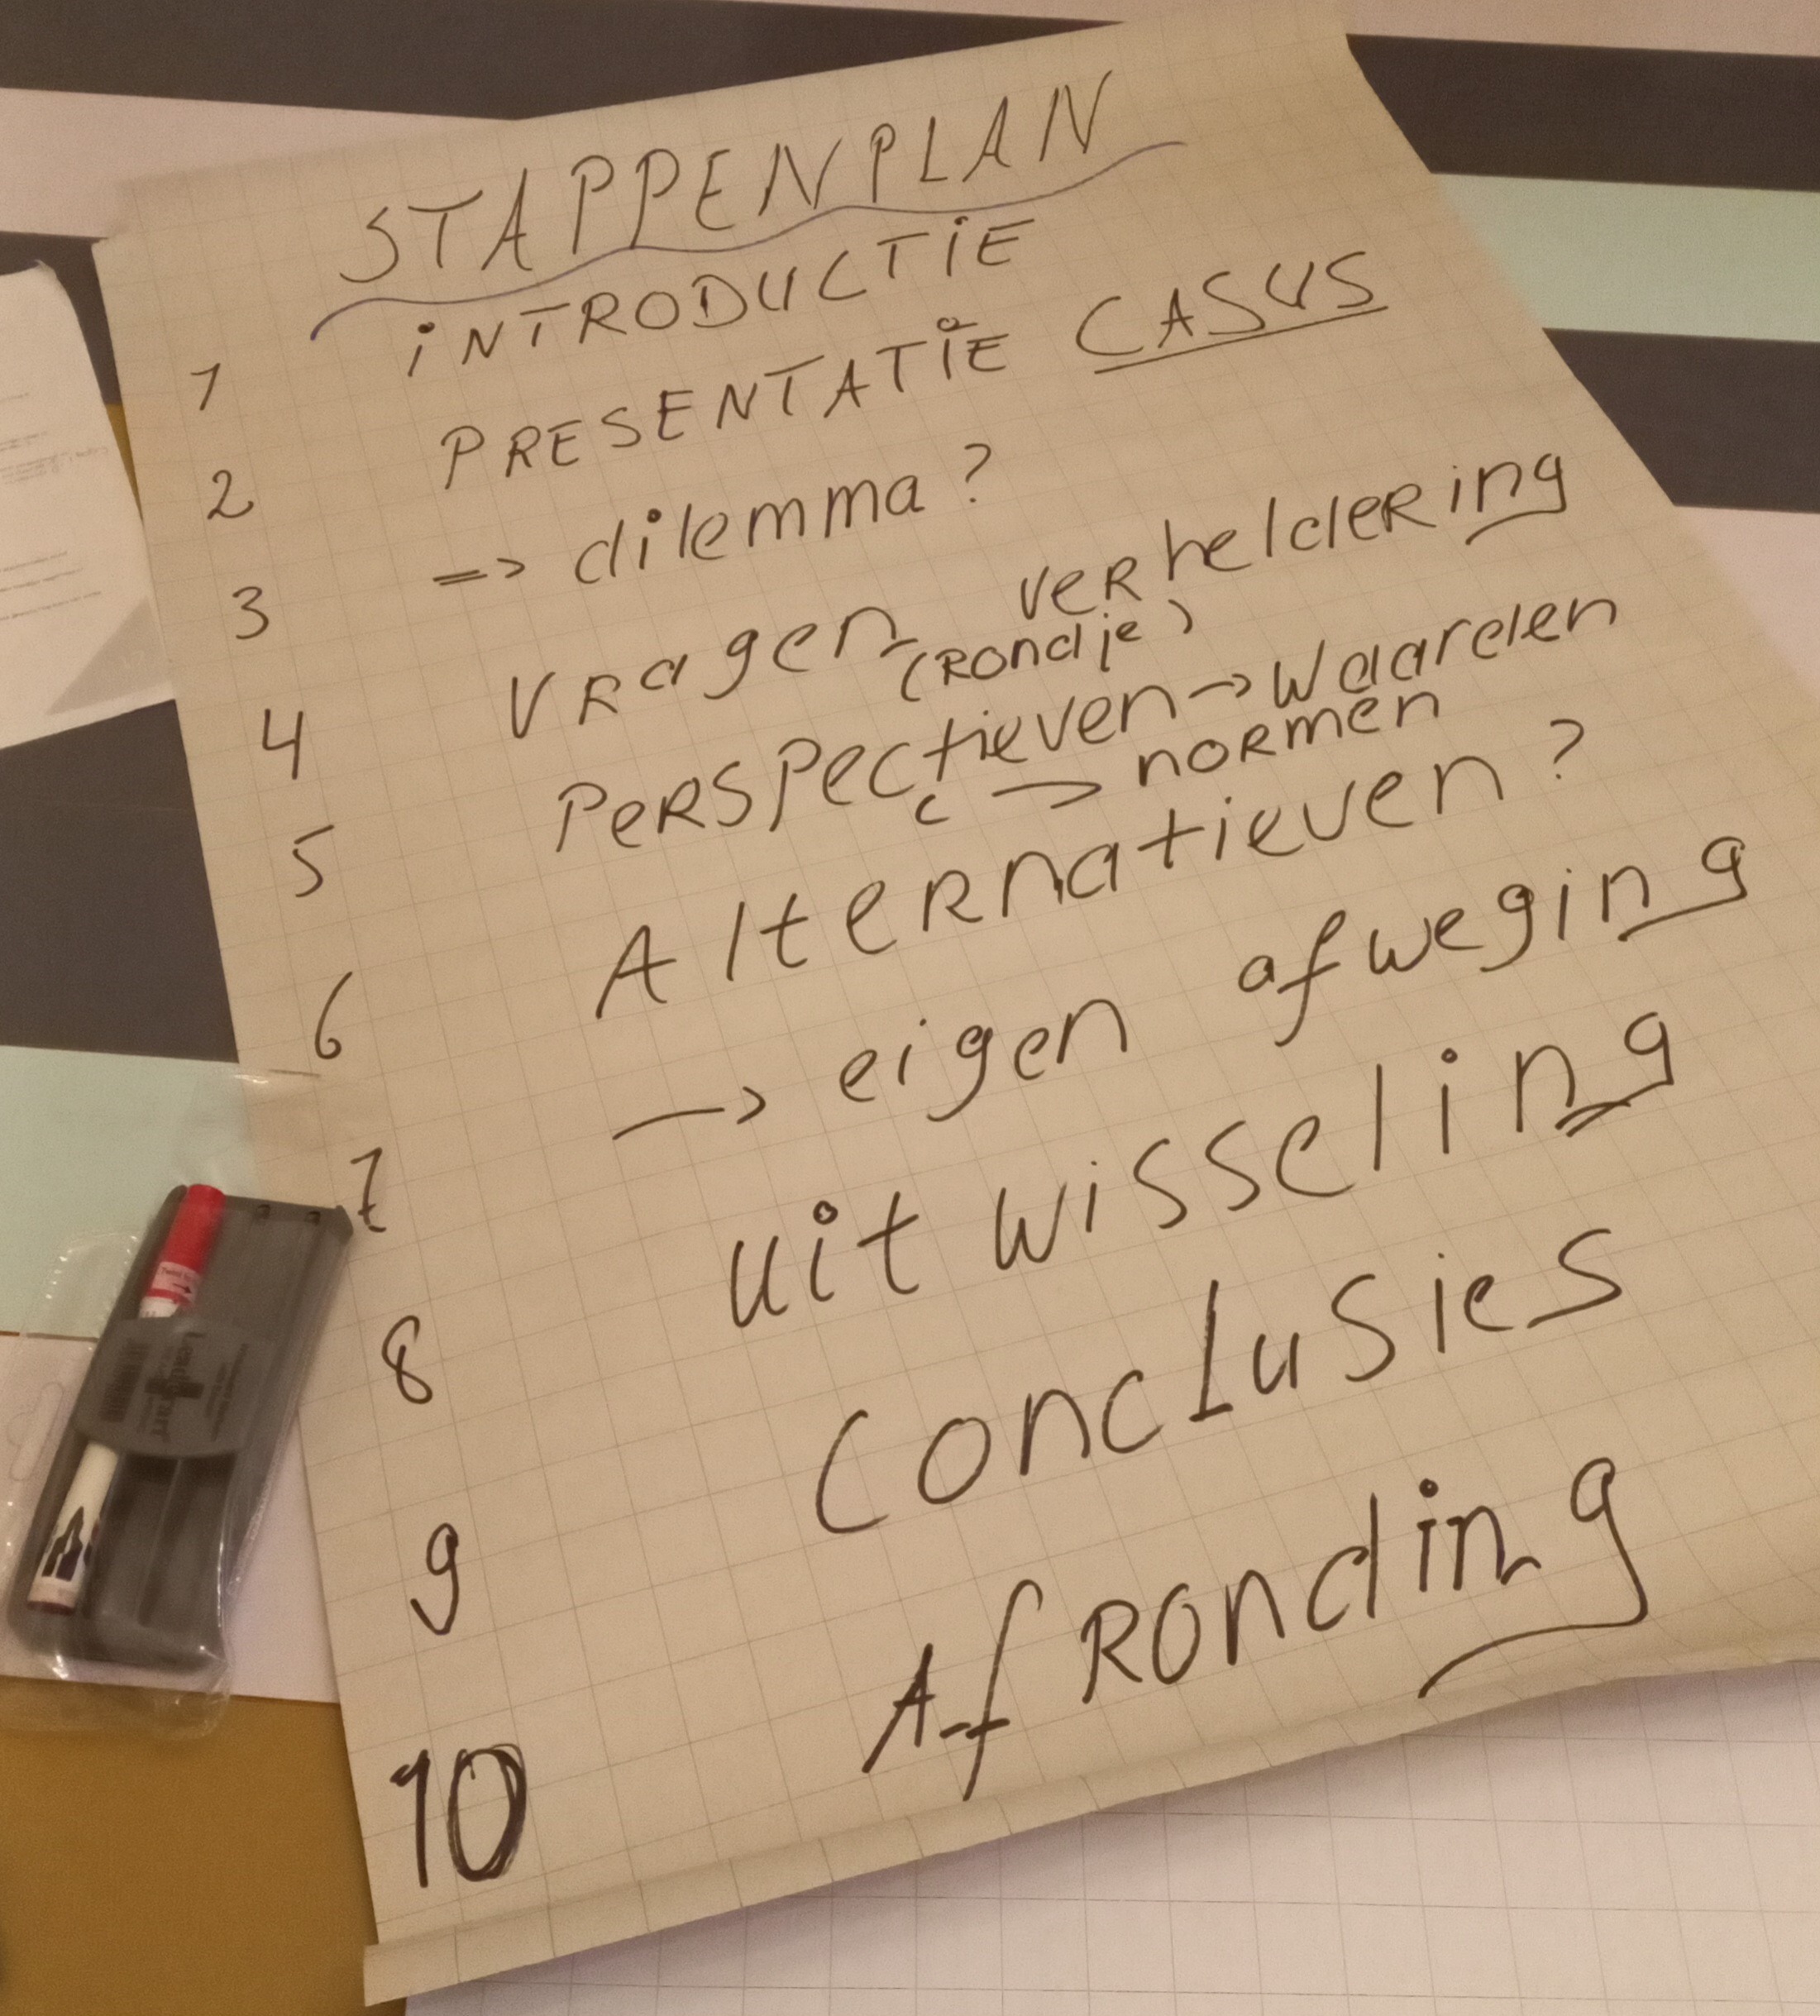 STAPPENPLAN
1 iNTRODUCTiE
2 PRESENTATiE CASUS
3 => dilemma?
4 VRagen verheldeRing
(Rondje)
5 PeRspectieven → Waarden
c → noRmen
6 AlteRnatieven?
7 → eigen afweging
8 uitwisseling
9 ConcLusies
10 AfRonding